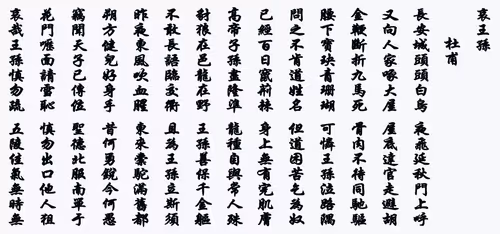 哀王孫
杜甫
長安城頭頭白烏 夜飛延秋門上呼
又向人家啄大屋 屋底達官走避胡
金鞭斷折九馬死 骨肉不待同馳驅
腰下寶玦青珊瑚 可憐王孫泣路隅
問之不肯道姓名 但道困苦乞為奴
已經百日竄荊棘 身上無有完肌膚
高帝子孫盡隆準 龍種自與常人殊
豺狼在邑龍在野 王孫善保千金軀
不敢長語臨交衢 且為王孫立斯須
昨夜東風吹血腥 東來橐駝滿舊都
朔方健兒好身手 昔何勇銳今何愚
竊聞天子已傳位 聖德北服南單于
花門面請雪恥 慎勿出口他人狙
哀哉王孫慎勿疏 五陵佳氣無時無